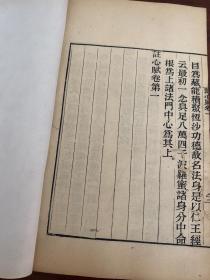 目爲藏能積聚恆沙功德故名法身是以仁王經
云最初一念具足八萬四千波羅蜜諸身分中命
根爲上諸法門中心爲其上
註心賦卷第一